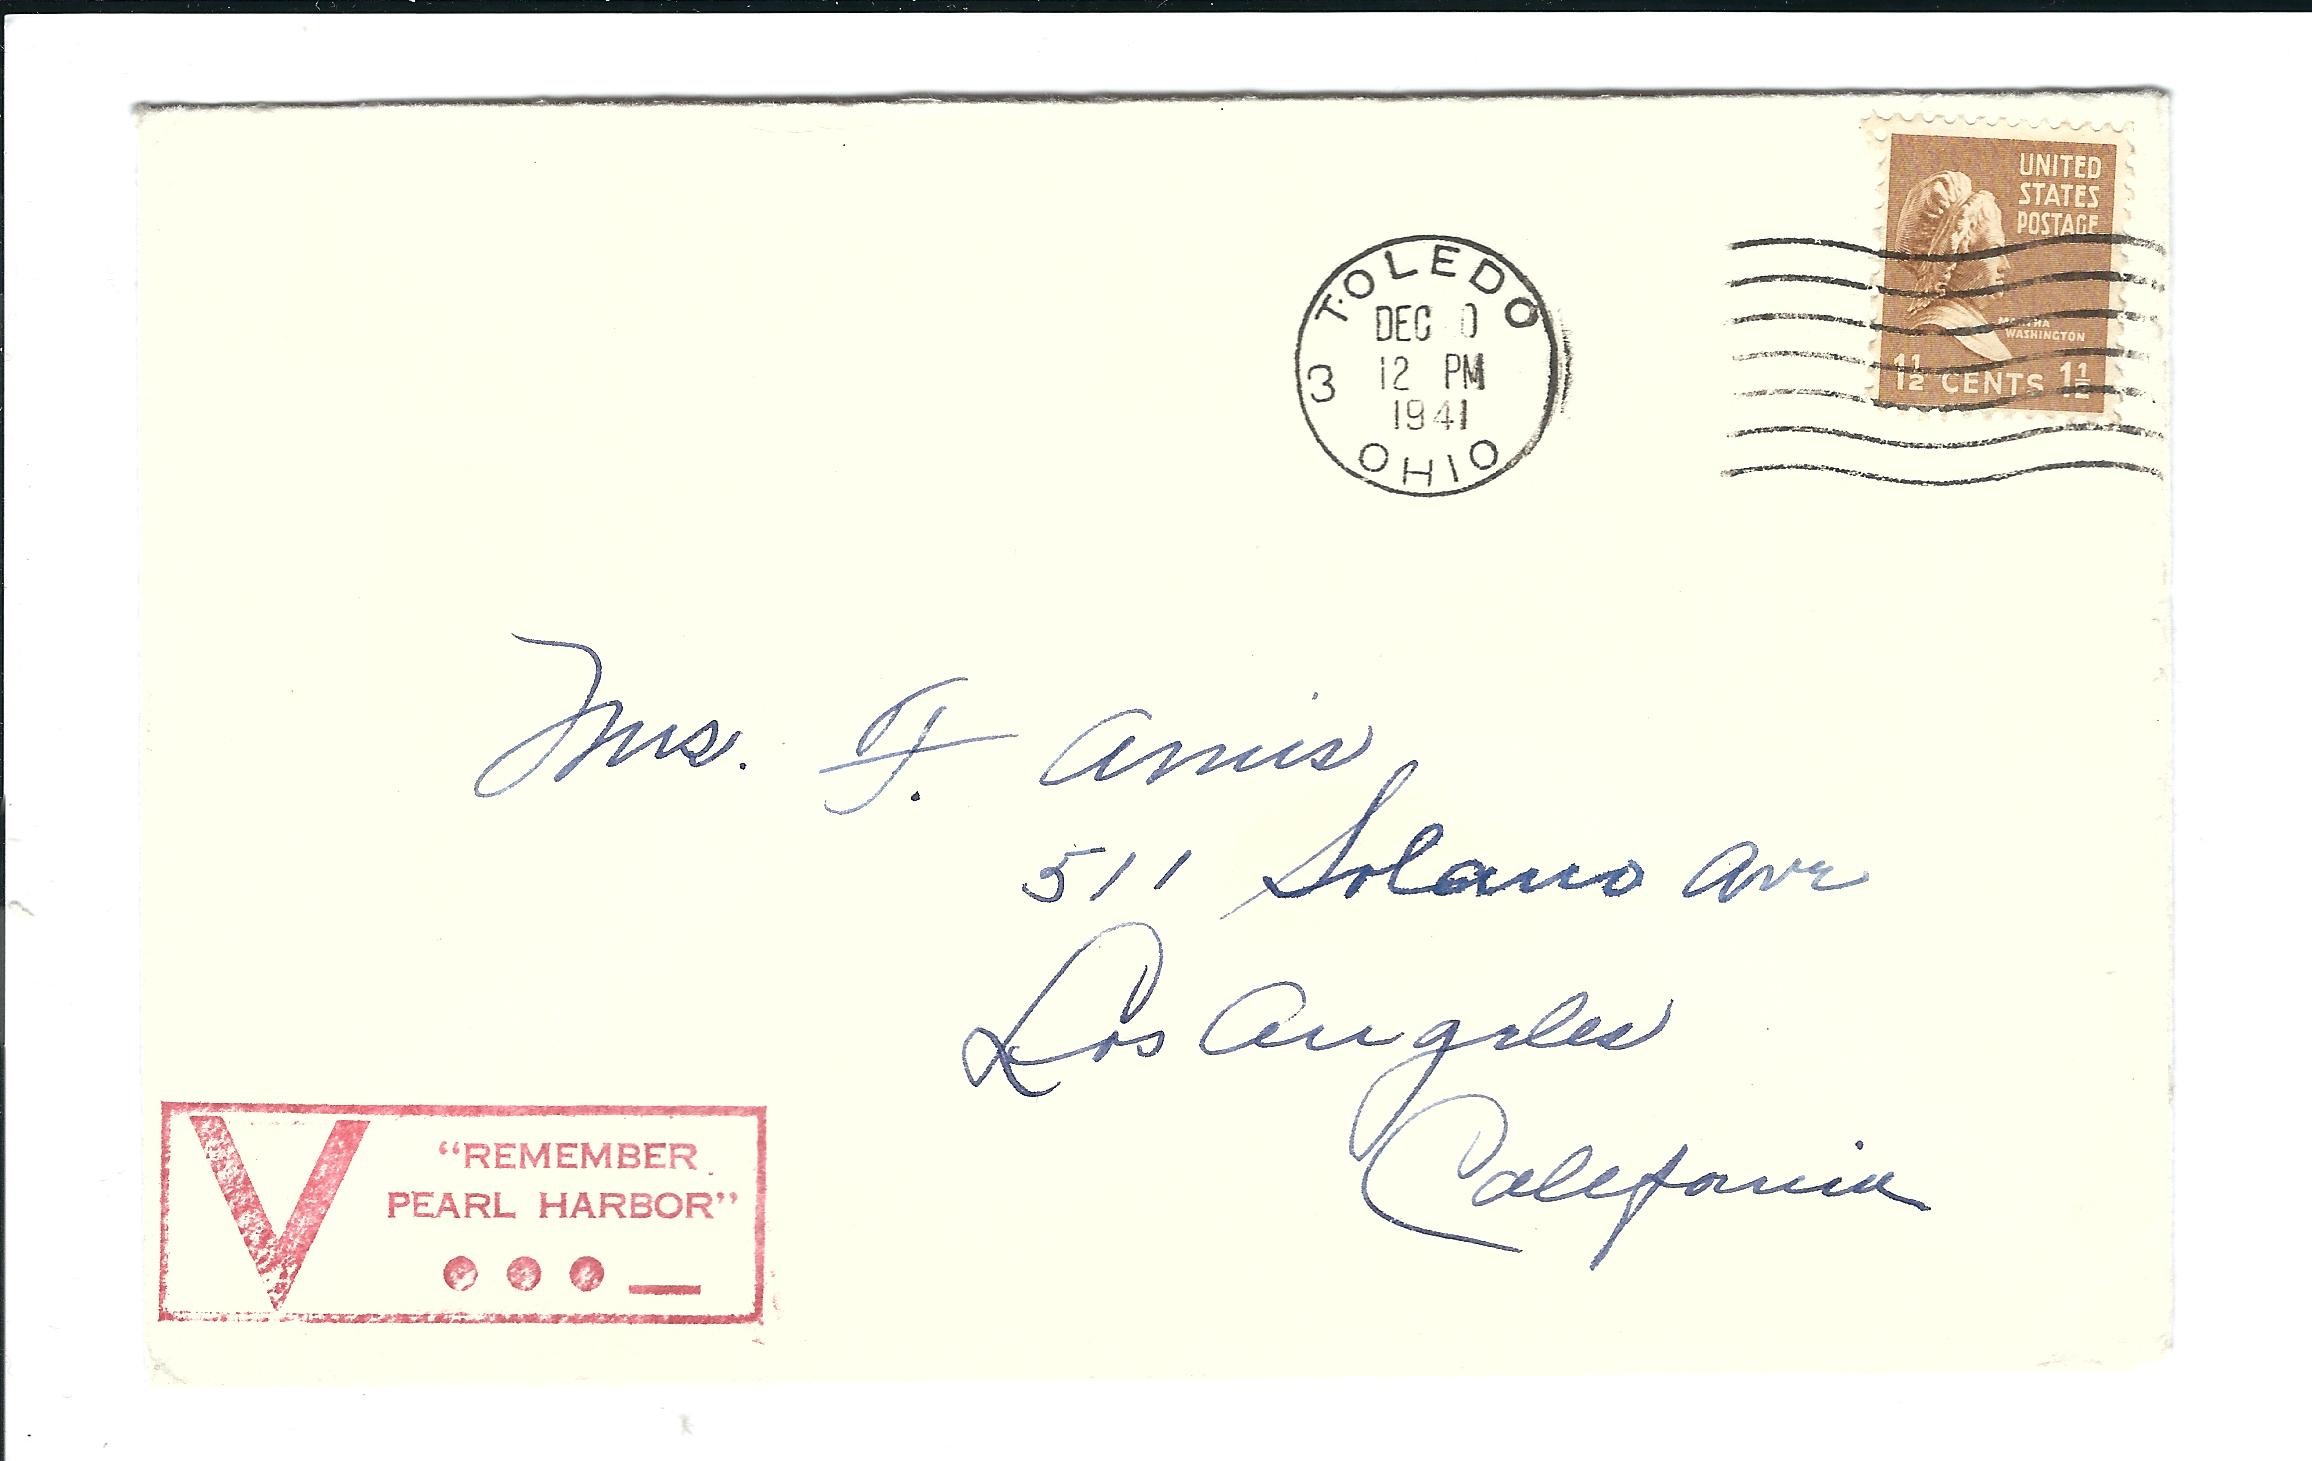 UNITED
STATES
POSTAGE
MARTHA
WASHINGTON
1½ CENTS 1½
TOLEDO
DEC 0
12 PM
1941
3
OHIO
Mrs. F. Amis
511 Solano Ave
Los Angeles
California
V
“REMEMBER
PEARL HARBOR”